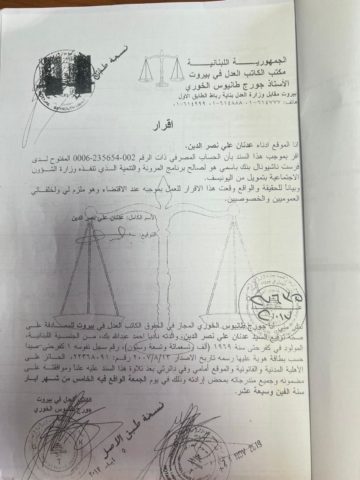 نسخة طبق
الجمهورية اللبنانية
مكتب الكاتب العدل في بيروت
الأستاذ جورج طانيوس الخوري
بيروت مقابل وزارة العدل بناية رباط الطابق الأول
هاتف: ٠١٠٦١٤٧٧٧ - ٠١٠٦١٤٨٨٨ - ٠١٠٦١٤٩٩٩
اقرار
انا الموقع ادناه عدنان علي نصر الدين.
اقر بموجب هذا السند بأن الحساب المصرفي ذات الرقم 002-235654-0006 المفتوح لدى
فرست ناشيونال بنك باسمي هو لصالح برنامج المرونة والتنمية الذي تنفذه وزارة الشؤون
الاجتماعية بتمويل من اليونيسف.
وبياناً للحقيقة والواقع وقعت هذا الاقرار للعمل بموجبه عند الاقتضاء وهو ملزم لي ولخلفائي
العموميين والخصوصيين.
الاسم الكامل: عدنان علي نصر الدين
التوقيع:
أنا جورج طانيوس الخوري المجاز في الحقوق الكاتب العدل في بيروت للمصادقة على
صحة توقيع السيد عدنان علي نصر الدين، والدته ناديا احمد عبدالله بك، من الجنسية اللبنانية،
المولود في كفرحتى سنة ١٩٦٩ (ألف وتسعماية وتسعة وستون)، رقم سجل نفوسه ١ كفرحتى-صيدا
حسب بطاقة هوية عليها رسمه تاريخ الاصدار ٢٠٠٧/٨/٢٣ رقم: ٠٢٢٣٦٨٠٩١، الحائز على
الأهلية المدنية والقانونية والموقع أمامي وفي دائرتي بعد تلاوة هذا السند عليه علناً وموافقته على
مضمونه وجميع مندرجاته بمحض إرادته وذلك في يوم الجمعة الواقع فيه الخامس من شهر ايار
سنة الفين وسبعة عشر.
الكاتب العدل في بيروت
جورج طانيوس الخوري
نسخة طبق الاصل